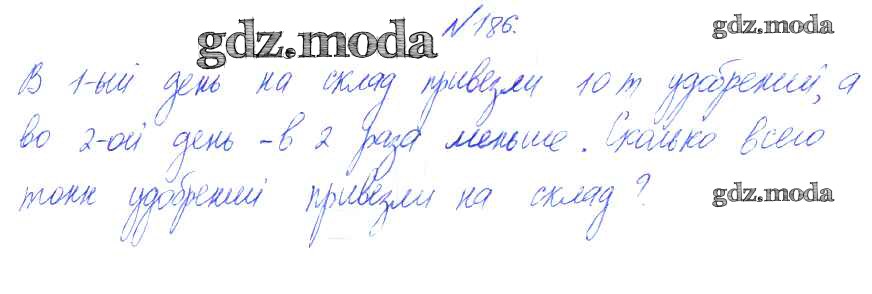 №186.
gdz.moda
gdz.moda
В 1-ый день на склад привезли 10 т удобрений, а
во 2-ой день - в 2 раза меньше. Сколько всего
тонн удобрений привезли на склад?
gdz.moda